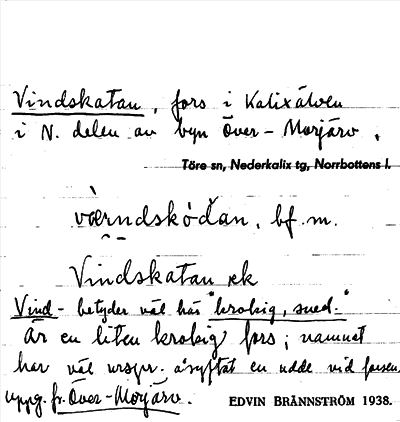 Vindskatan, fors i Kalixälven
i N. delen av byn Över-Morjärv.
Töre sn, Nederkalix tg, Norrbottens l.
værndskòdan, bf. m.
Vindskatan ek
Vind- betyder väl här "krokig, sned-"
Är en liten krokig fors; namnet
har väl urspr. åsyftat en udde vid forsen
uppg. fr. Över-Morjärv.
EDVIN BRÄNNSTRÖM 1938.